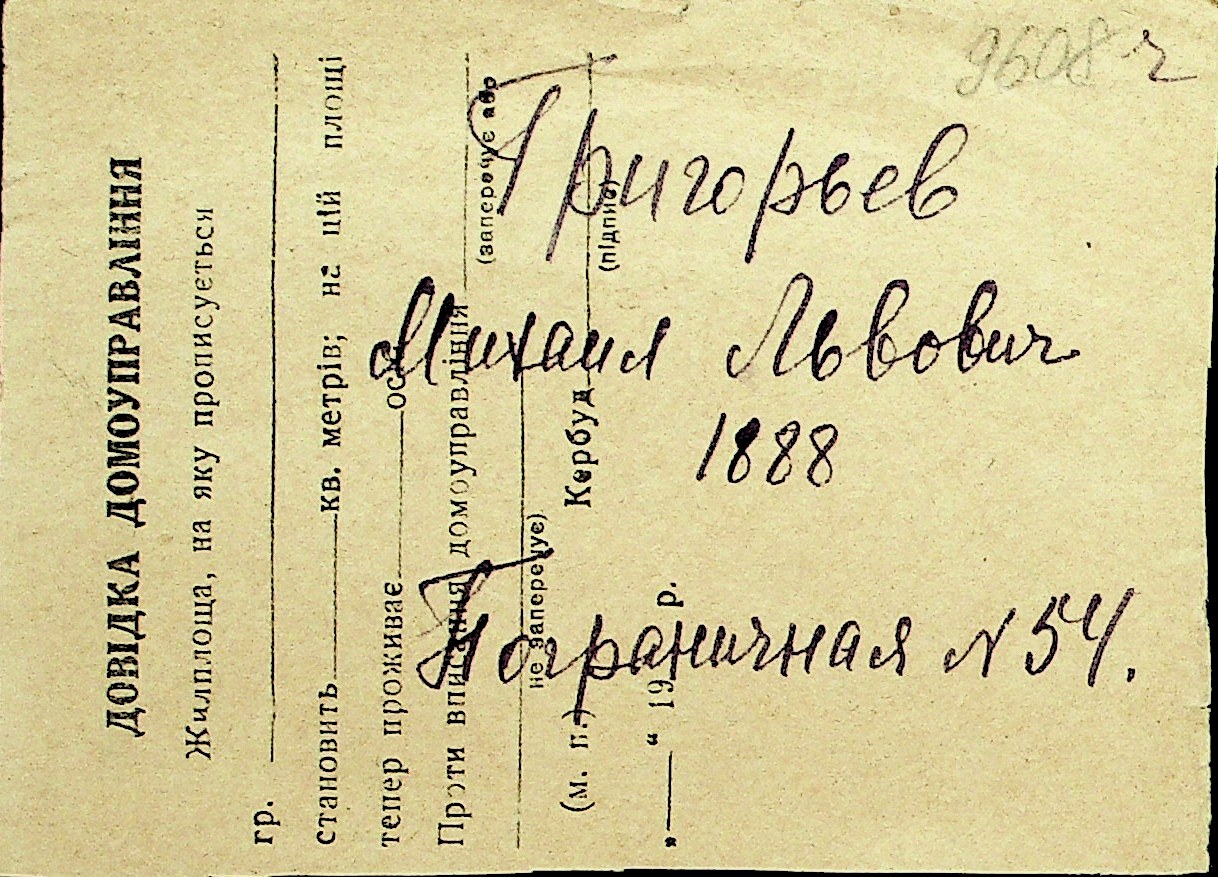 9608 ч
Григорьев
Михаил Львович
1888
Пограничная N 54.
ДОВІДКА ДОМОУПРАВЛІННЯ
Жилплоща, на яку прописується
гр.
становить кв. метрів; на цій площі
тепер проживає осіб
Проти вписання домоуправління
(заперечує або
не заперечує)
(м. п.) Кербуд
(підпис)
„ “ 19 р.